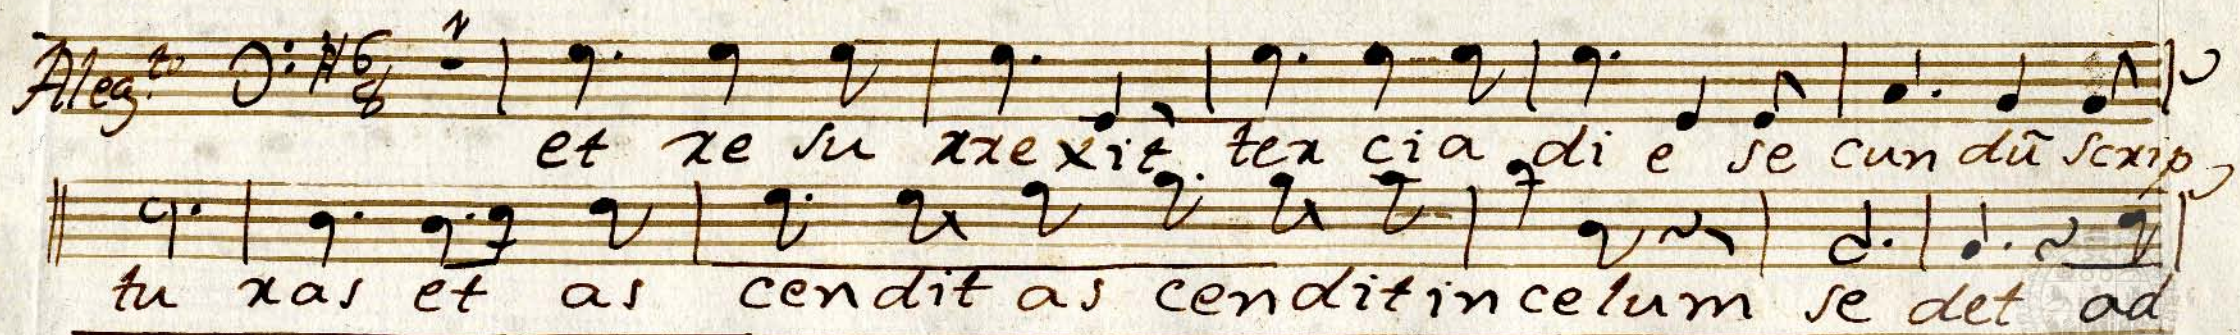 Aleg.to 6 8 1
et re su rrexit. ter cia di e se cun dũ scrip
tu ras et as cendit as cendit in celum se det ad